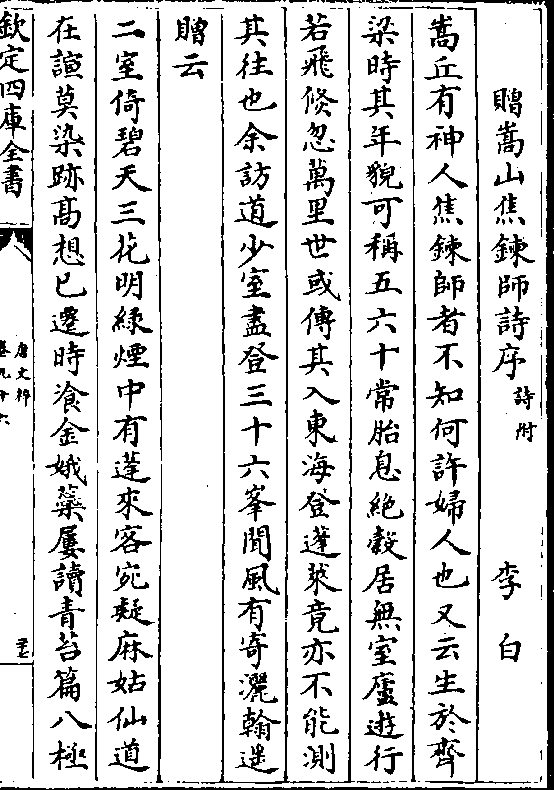 贈嵩山焦鍊師詩序詩附 李白
嵩丘有神人焦鍊師者不知何許婦人也又云生於齊
梁時其年貌可稱五六十常胎息絶糓居無室廬遊行
若飛倐忽萬里世或傳其入東海登蓬萊竟亦不能測
其往也余訪道少室盡登三十六峯聞風有寄灑翰遥
贈云
二室倚碧天三花明緑煙中有蓬來客宛疑麻姑仙道
在諠莫染跡髙想已遷時飡金娥蘂屢讀青苔篇八極
欽定四庫全書
唐文粹
卷九十六